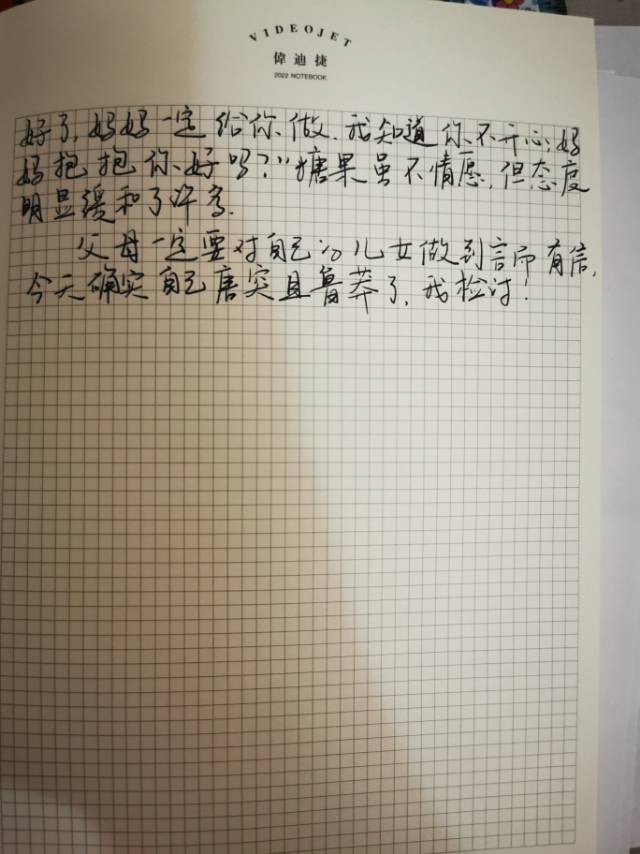 VIDEOJET
偉迪捷
2022 NOTEBOOK
好了,妈妈一定给你做,我知道你不开心,妈
妈抱抱你好吗?”糖果虽不情愿,但态度
明显缓和了许多.
父母一定要对自己的儿女做到言而有信,
今天确实自己唐突且鲁莽了,我检讨!